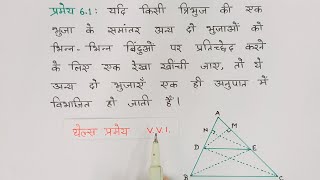 प्रमेय 6.1: यदि किसी त्रिभुज की एक
भुजा के समांतर अन्य दो भुजाओं को
भिन्न-भिन्न बिंदुओं पर प्रतिच्छेद करने
के लिए एक रेखा खींची जाए, तो ये
अन्य दो भुजाएँ एक ही अनुपात में
विभाजित हो जाती हैं।
थेल्स प्रमेय V.V.I.
A
N M
D E
B C